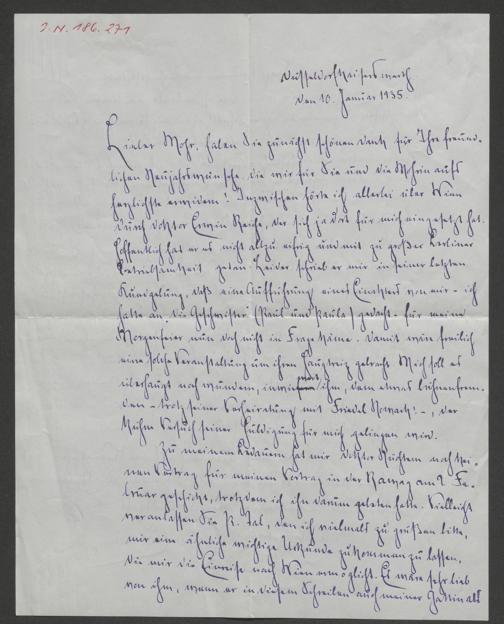 I. N. 186.271
Düsseldorf-Kaiserswerth
den 10. Januar 1935.
Lieber Mohr, haben Sie zunächst schönen Dank für Ihre freund-
lichen Neujahrswünsche, die wir für Sie und die Mohrin aufs
herzlichste erwidern! Inzwischen hörte ich allerlei über Wien
durch Doktor Erwin Reiche, der sich ja dort für mich eingesetzt hat.
Hoffentlich hat er es nicht allzu eifrig und mit zu großer Berliner
Betriebsamkeit getan. Leider schrieb er mir in seiner letzten
daß eine Aufführung eines Einakters von mir – ich
hatte an die Geschwister (Paul und Paula) gedacht – für meine
Morgenfeier nun doch nicht in Frage käme. Damit wäre freilich
eine solche Veranstaltung um ihren gebracht. Mich soll es
überhaupt noch wundern, inwieweit ihm, dem etwas bühnenfrem-
den – trotz seiner Verheiratung mit Friedel Nowack! –, der
kühne Versuch seiner Huldigung für mich gelingen wird.
Zu meinem Bedauern hat mir Doktor noch kei-
nen Vertrag für meinen Vortrag in der am 2. Fe-
bruar geschickt, trotzdem ich ihn darum gebeten hatte. Vielleicht
veranlassen Sie den ich vielmals zu grüßen bitte,
mir eine ähnliche wichtige Urkunde zukommen zu lassen,
die mir die Einreise nach Wien ermöglicht. Es wäre sehr lieb
von ihm, wenn er in diesem Schreiben auch meiner Gattin als